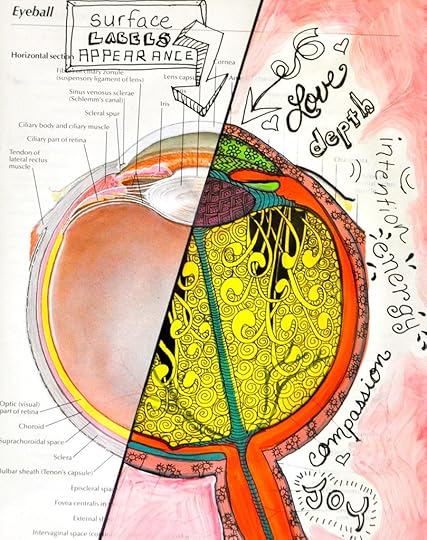 Eyeball
surface
LABELS
APPEARANCE
Horizontal section
(suspensory ligament of lens)
Lens capsule
Cornea
Sinus venosus sclerae
(Schlemm's canal)
Iris
Scleral spur
Ciliary body and ciliary muscle
Ciliary part of retina
Tendon of
lateral rectus
muscle
Love
depth
intention
energy
compassion
JOY
Optic (visual)
part of retina
Choroid
Suprachoroidal space
Sclera
Bulbar sheath (Tenon's capsule)
Episcleral spa
Fovea centralis in
External sh
Intervaginal space